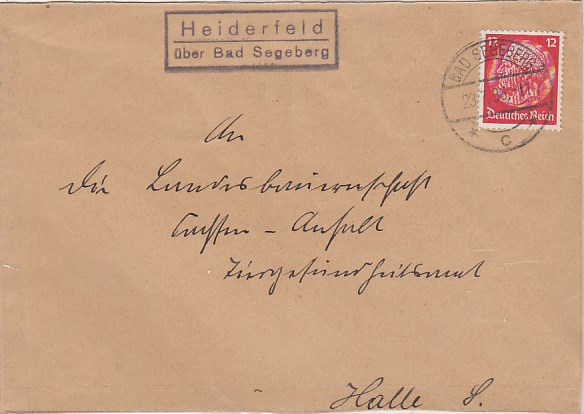 Heiderfeld
über Bad Segeberg
12 12
Deutsches Reich
BAD SEGEBERG
23
* C
An
die Landesbauernschaft
Sachsen - Anhalt
Tiergesundheitsamt
Halle S.